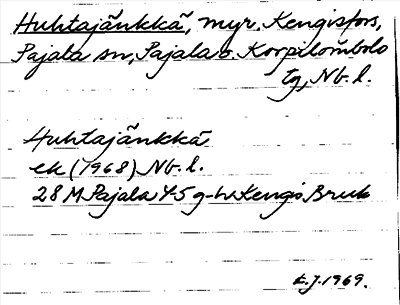 Huhtajänkkä, myr, Kengisfors,
Pajala sn, Pajala o. Korpilombolo
tg, Nb. l.
Huhtajänkkä
ek (1968) Nb. l.
28 M Pajala 4-5 g-h Kengis Bruk
E.J. 1969.